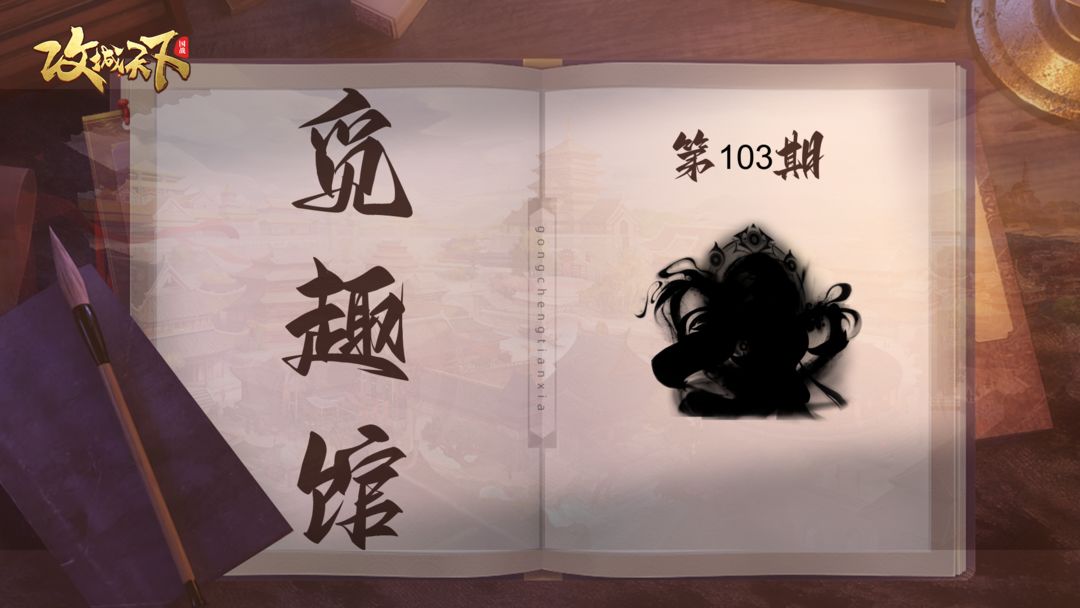 攻城天下
国战
觅趣馆
第103期
gongchengtianxia